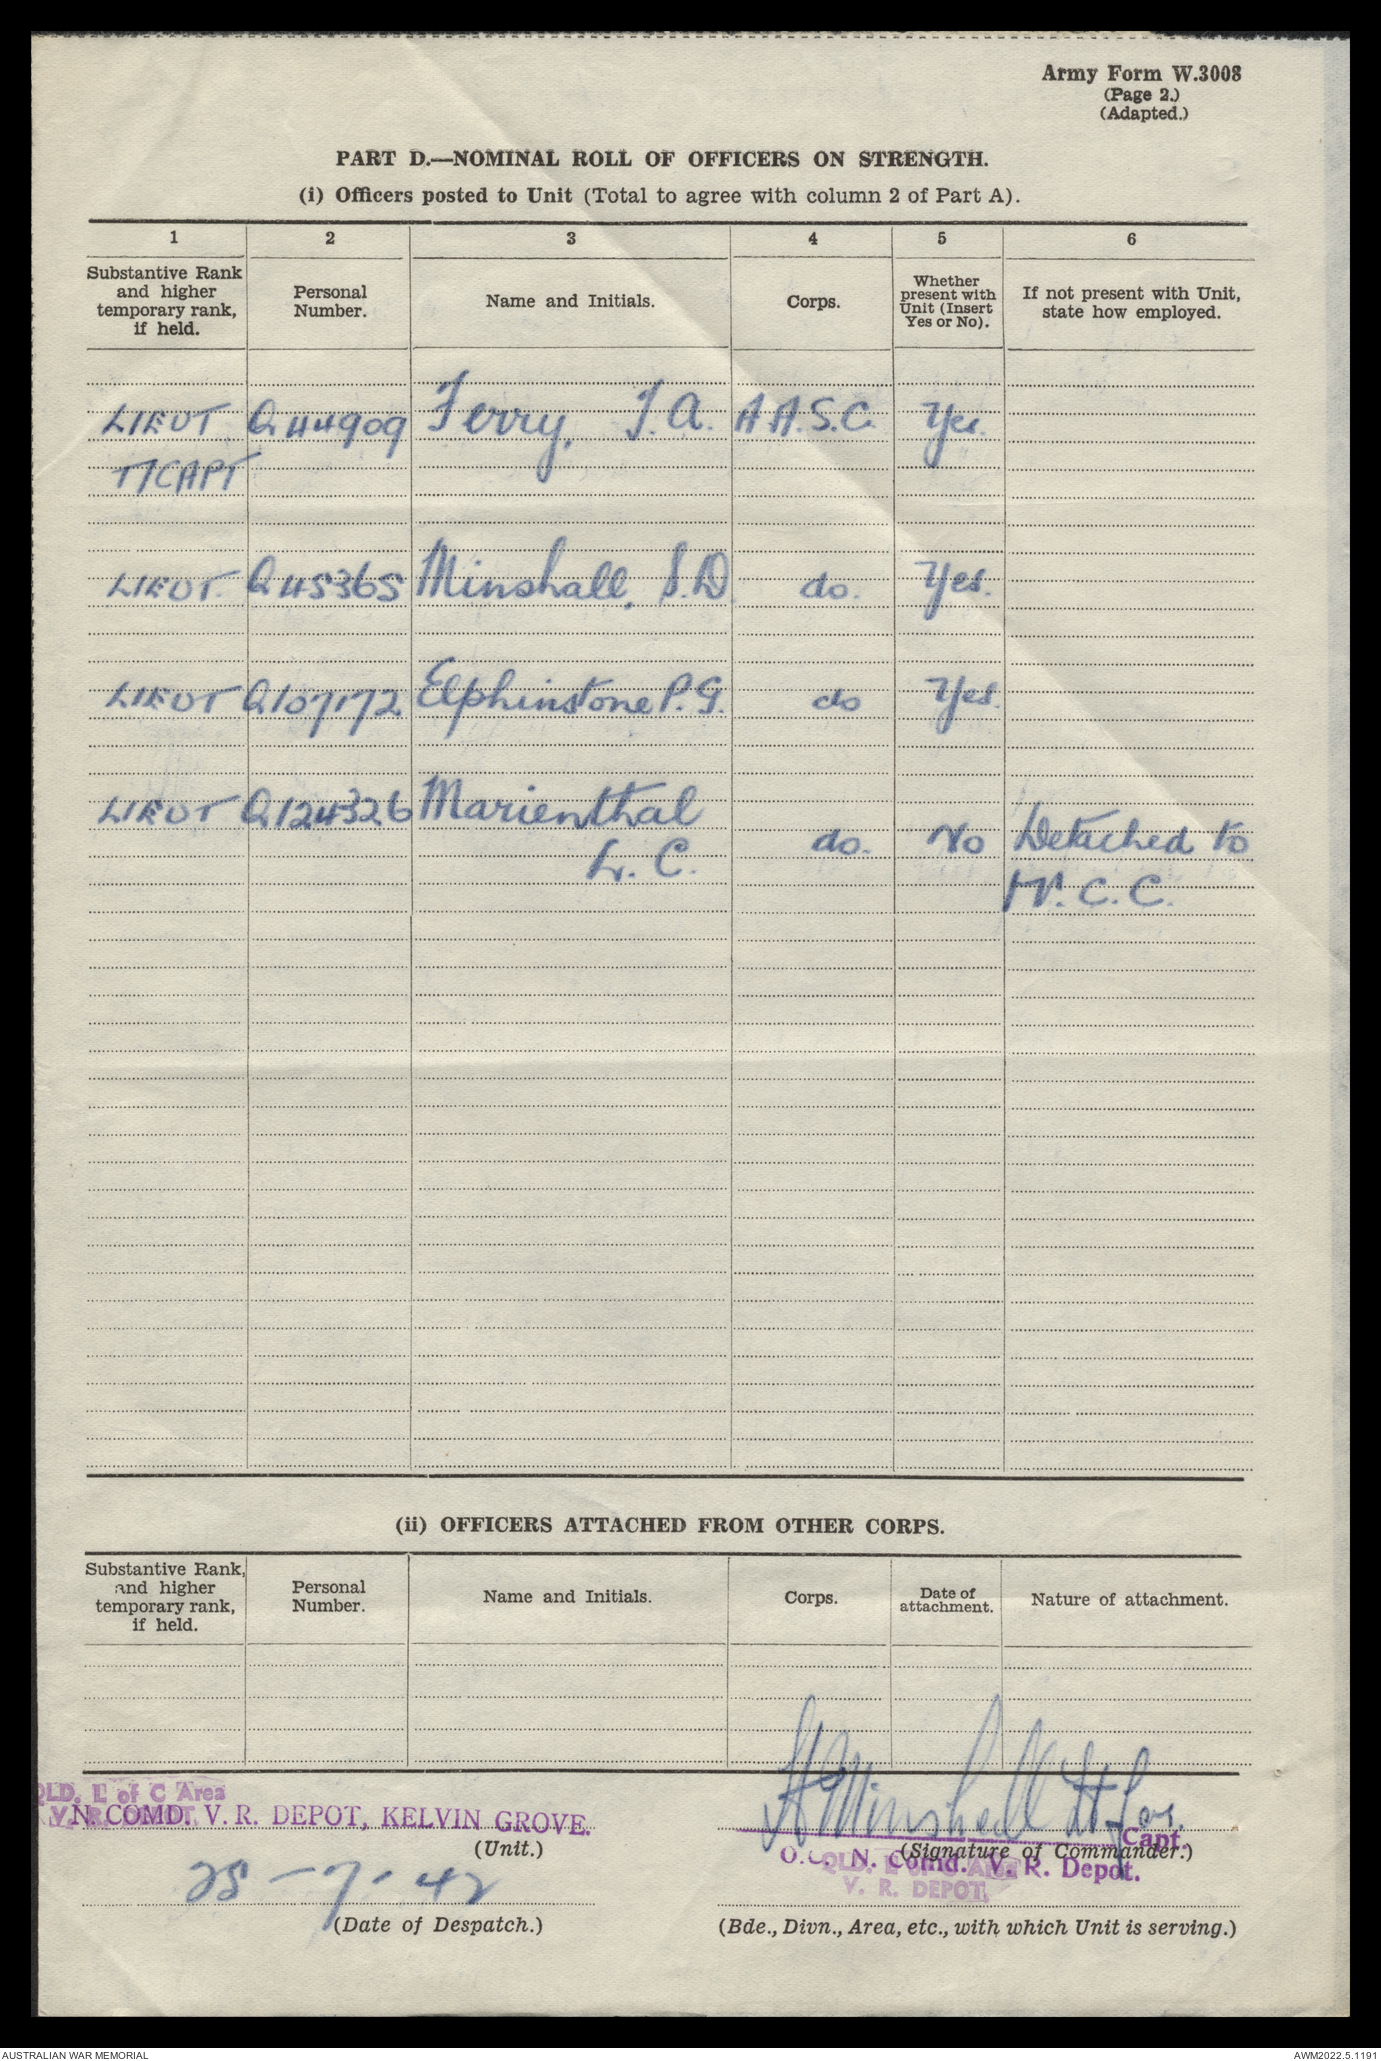 Army Form W.3008
(Page 2.)
(Adapted.)
PART D.—NOMINAL ROLL OF OFFICERS ON STRENGTH.
(i) Officers posted to Unit (Total to agree with column 2 of Part A).
1 2 3 4 5 6
Substantive Rank and higher temporary rank, if held.
Personal Number.
Name and Initials.
Corps.
Whether present with Unit (Insert Yes or No).
If not present with Unit, state how employed.
LIEUT Q44909 Ferry, J.A. A.A.S.C. Yes.
T/CAPT
LIEUT. Q45365 Minshall, S.D. do. Yes.
LIEUT Q107172 Elphinstone P.G. do Yes.
LIEUT Q124326 Marienthal
L. C. do. No Detached to
C. C.
(ii) OFFICERS ATTACHED FROM OTHER CORPS.
Substantive Rank, and higher temporary rank, if held.
Personal Number.
Name and Initials.
Corps.
Date of attachment.
Nature of attachment.
QLD. L of C Area
V. R. DEPOT.
N. COMD. V. R. DEPOT, KELVIN GROVE.
(Unit.)
Minshall Lt for
Capt.
(Signature of Commander.)
O.C. N. Comd. V. R. Depot.
QLD. L of C Area
V. R. DEPOT.
28-7-42
(Date of Despatch.)
(Bde., Divn., Area, etc., with which Unit is serving.)
AUSTRALIAN WAR MEMORIAL
AWM2022.5.1191